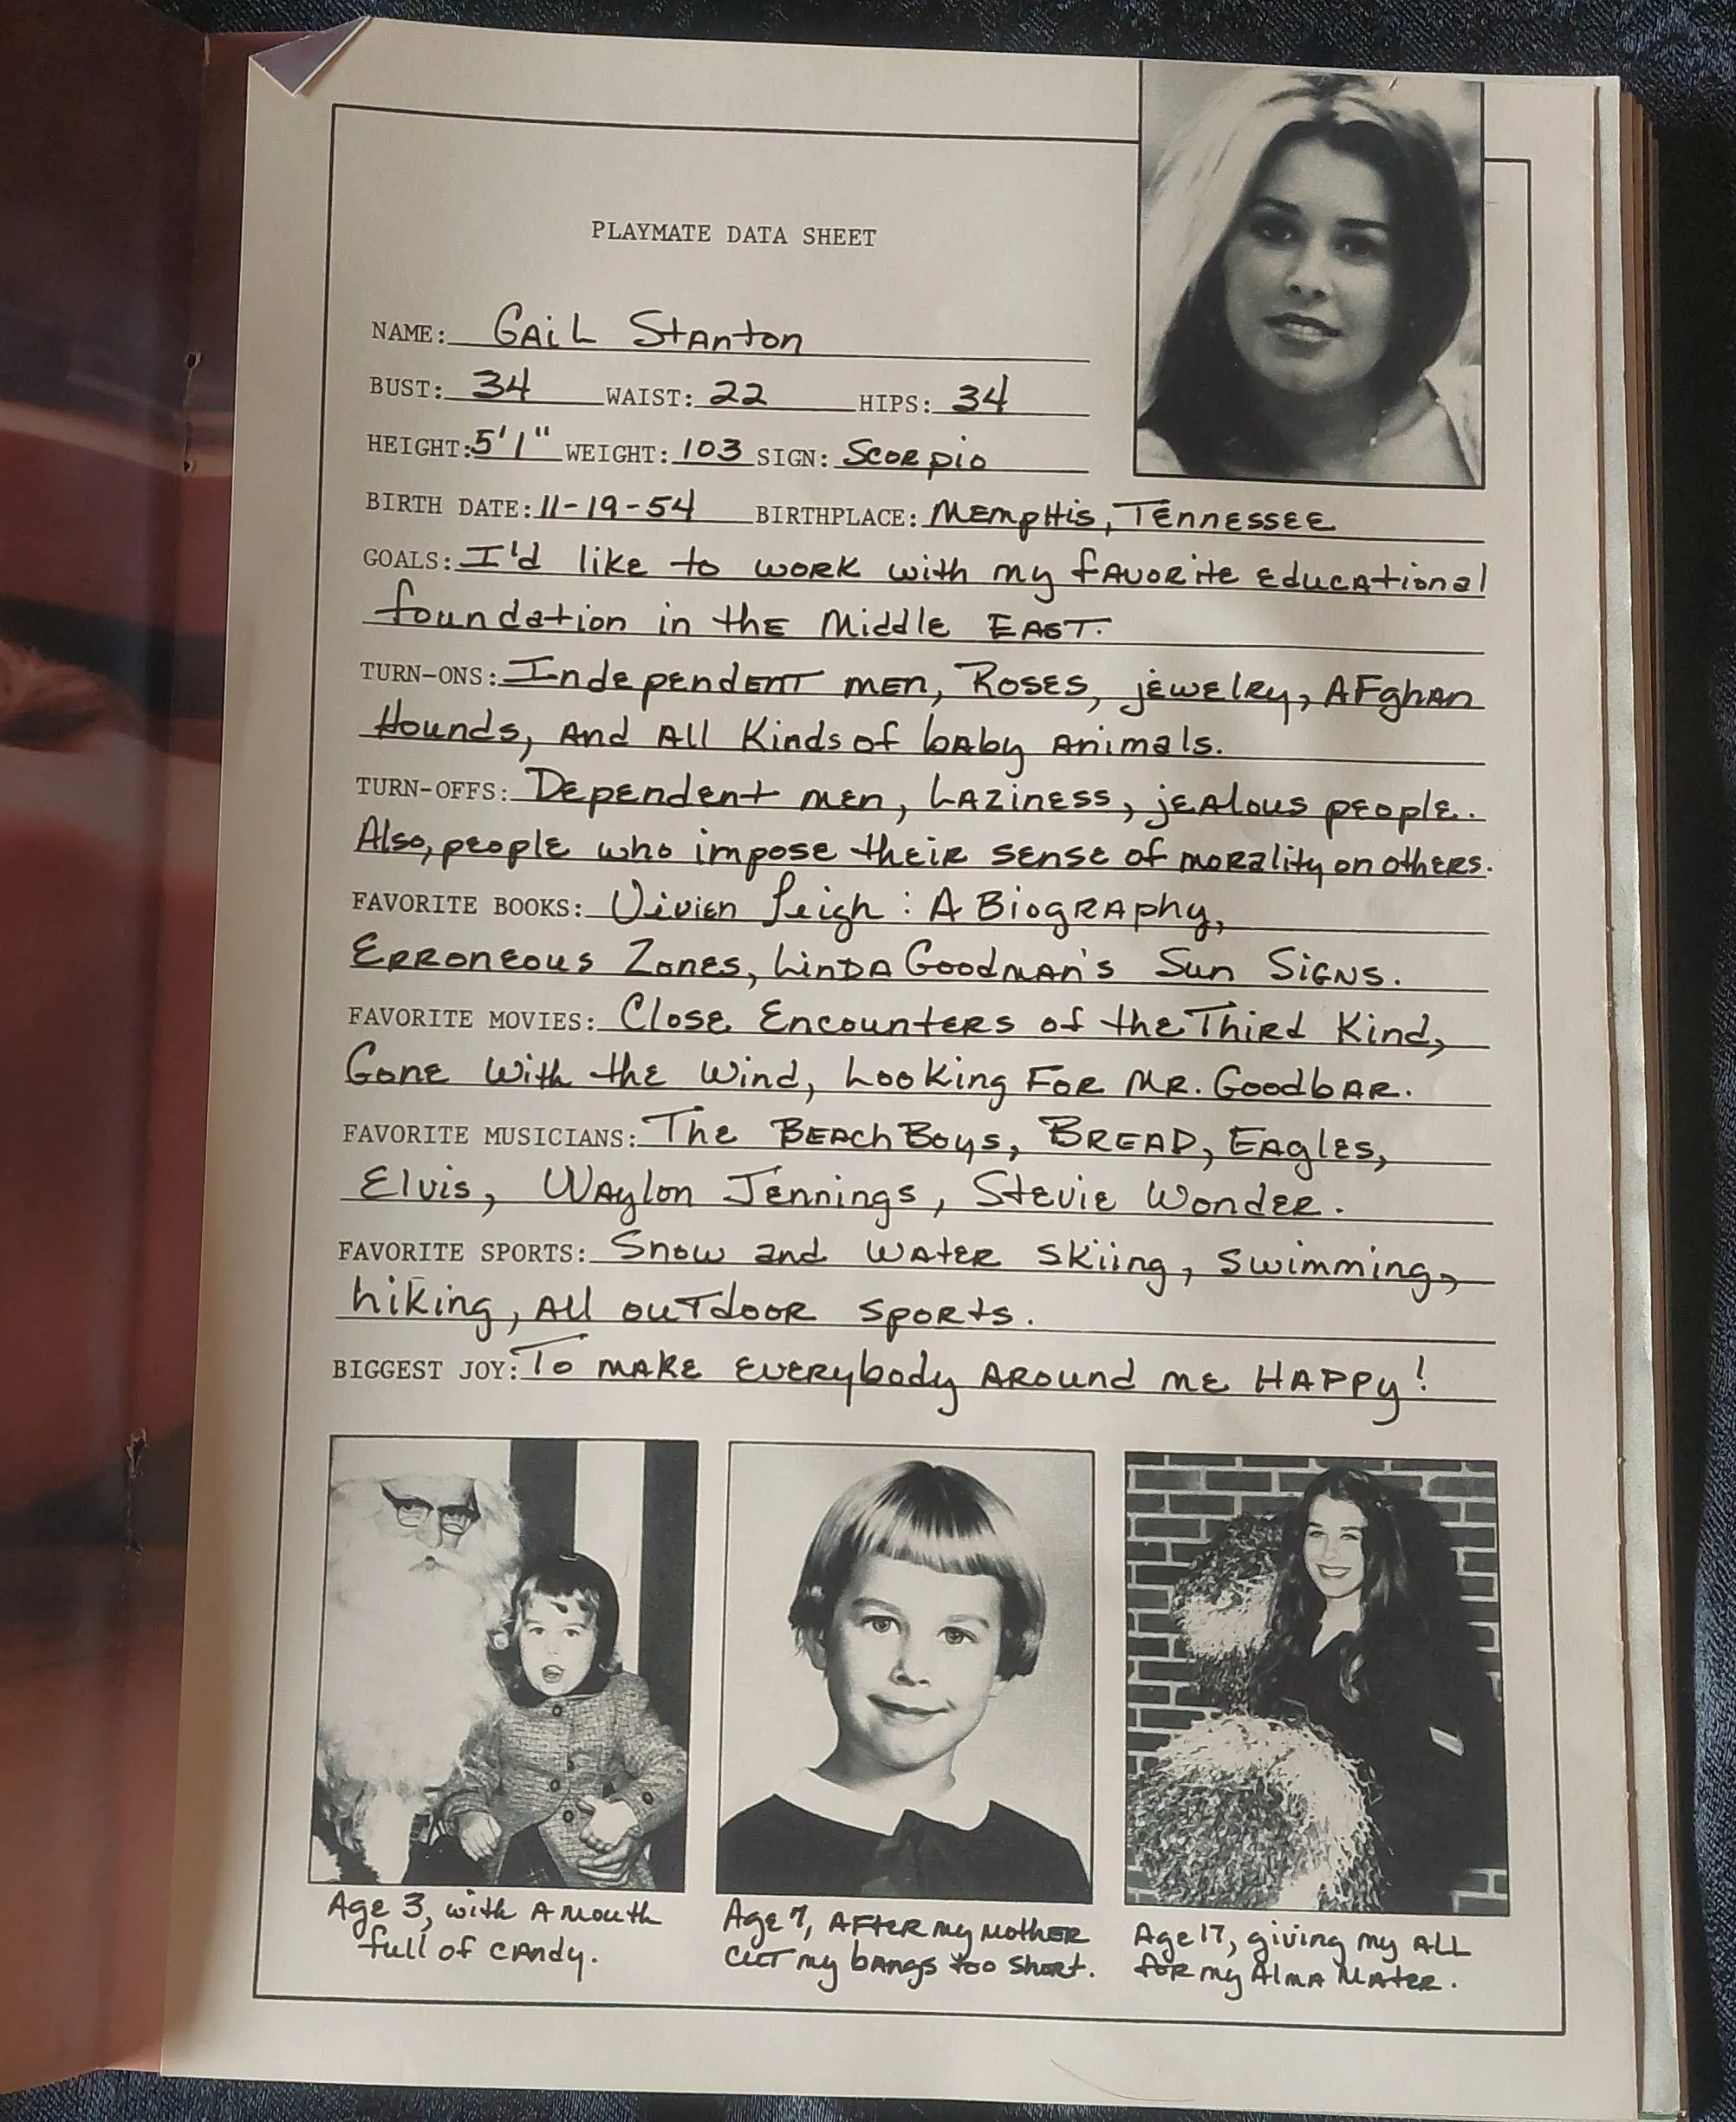 PLAYMATE DATA SHEET
NAME: GAiL StAnton
BUST: 34 WAIST: 22 HIPS: 34
HEIGHT: 5'1" WEIGHT: 103 SIGN: Scorpio
BIRTH DATE: 11-19-54 BIRTHPLACE: Memphis, Tennessee
GOALS: I'd like to work with my favorite educational
foundation in the Middle East.
TURN-ONS: Independent men, Roses, jewelry, Afghan
Hounds, And All Kinds of baby Animals.
TURN-OFFS: Dependent men, Laziness, jealous people.
Also, people who impose their sense of morality on others.
FAVORITE BOOKS: Vivien Leigh: A Biography,
Erroneous Zones, Linda Goodman's Sun Signs.
FAVORITE MOVIES: Close Encounters of the Third Kind,
Gone With the Wind, Looking For Mr. Goodbar.
FAVORITE MUSICIANS: The Beach Boys, BREAD, Eagles,
Elvis, Waylon Jennings, Stevie Wonder.
FAVORITE SPORTS: Snow and Water skiing, swimming,
hiking, All outdoor sports.
BIGGEST JOY: To make everybody around me HAPPy!
Age 3, with A mouth
full of candy.
Age 7, After my mother
cut my bangs too short.
Age 17, giving my ALL
for my Alma Mater.